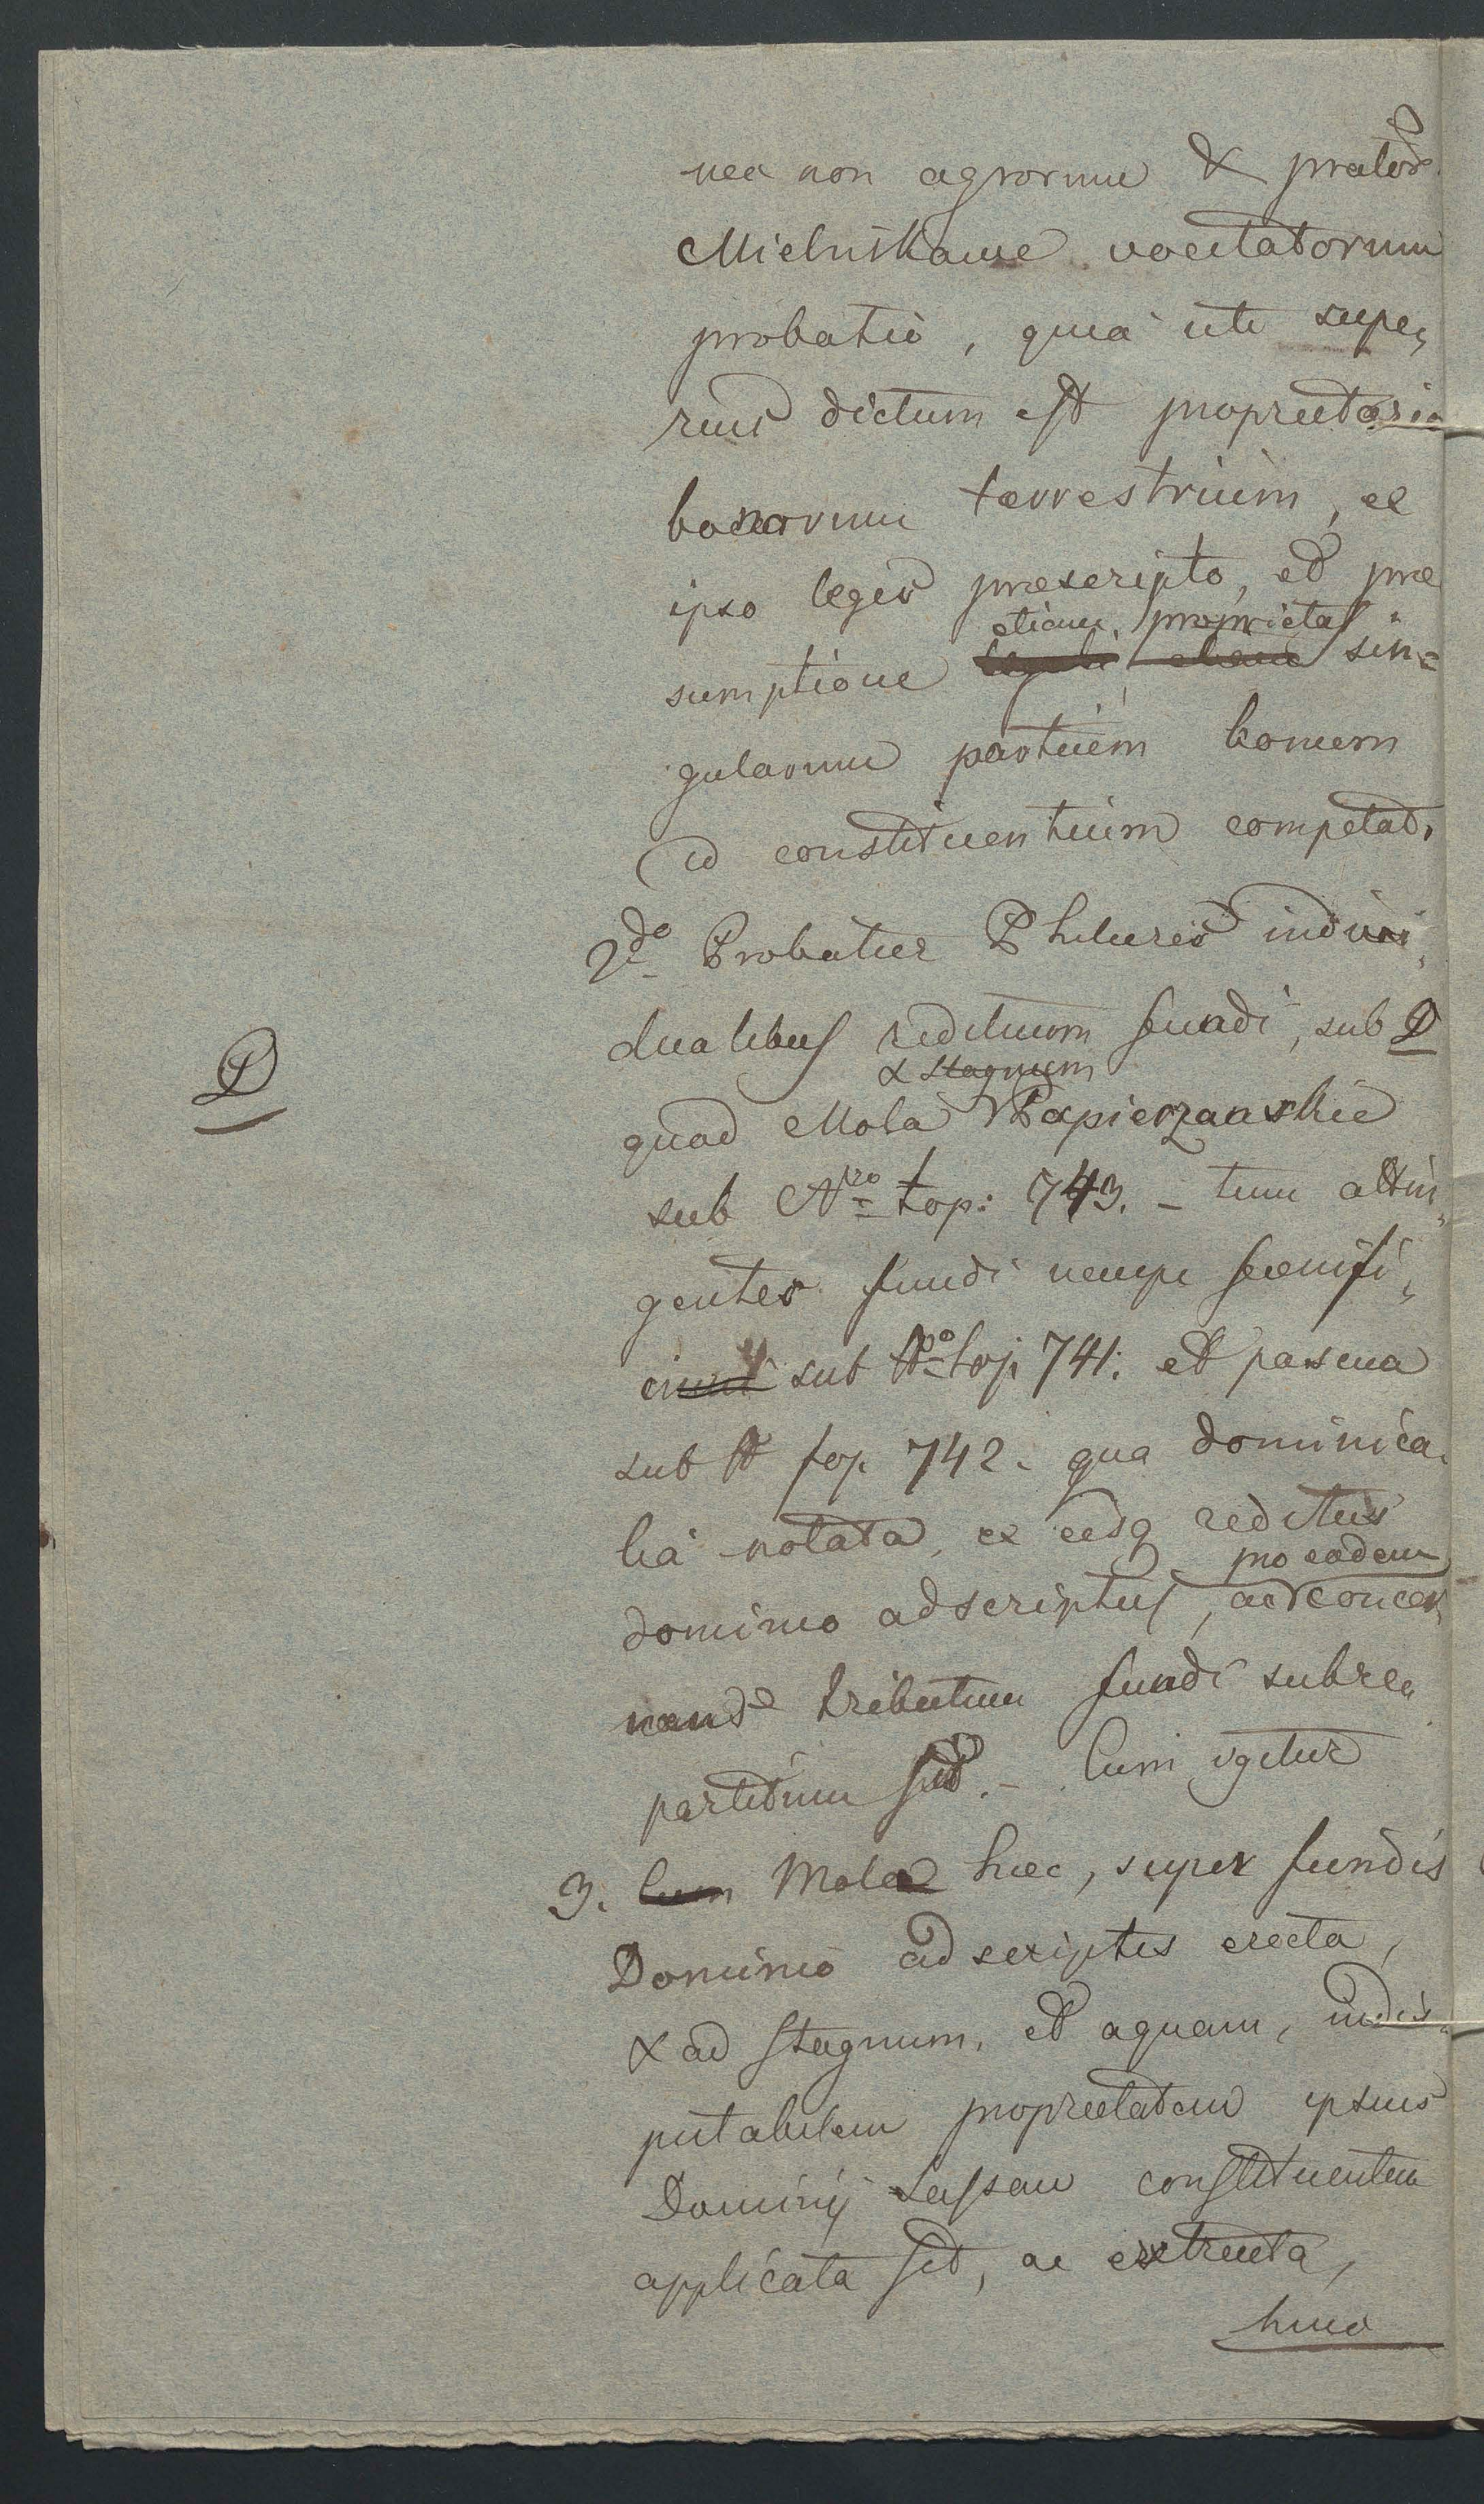 nec non agrorum & prator.
Mielnikame vocitatorum
probatio, quia uti supe„
rius dictum est proprietario
bonorum terrestrium, ex
ipso legis praescripto, et prae
etiam proprietas
sumptione legali etiam sin=
gularum partium bonum
id constituentium competat.
2do Probatur Philuris indivi„
dualibus redituum fundi, sub D
D
& stagnum
quod Mola Papierzanskie
sub Nro top: 743. – tum attin„
gentes fundi nempe foenifi„
cium sub Nro top 741. et pascua
sub N top. 742. qua dominica„
lia notata, ex eisq reditus
pro eodem
dominio adscriptus, ac concer„
nens tributum fundi subre„
partitum sit. – Cum igitur
3. Cum Mola haec, super fundis
Dominio adscriptis erecta,
& ad stagnum, et aquam, indis„
putabilem proprietatem ipsius
Dominij Lassau constituentem
applicata sit, ac extructa,
hinc